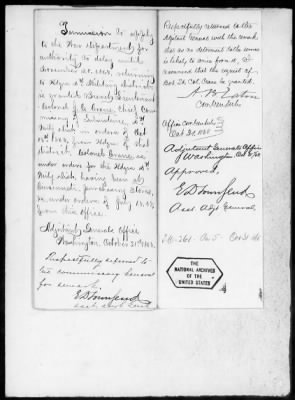 Permission to apply
to the War Department for
authority to delay until
November 20, 1868, returning
to Hdqrs 4th Military district
is granted Brevet Lieutenant
Colonel J. C. Crane, Chief Com
missary of Subsistence, 4th
Mily dist in orders of Oct
1868, from Hdqrs of that
district. Colonel Crane, is
under orders for the Hdqrs 4th
Mily dist having been at
Cincinnati, purchasing stores,
under orders of July
from this office.
Adjutant Generals Office
Washington, October 21st 1868.
Respectfully referred to
the commissary General
for remark.
E D Townsend
Asst Adjt Genl
Respectfully returned to the
Adjutant General with the remark
that as no detriment to the service
is likely to arise from it, it is
recommended that the request of
Bvt Lt. Col. Crane be granted.
A B Eaton
Com Gen Subs
Office Com Gen Subs
Oct 1868
Adjutant Generals Office
Washington Oct
Approved.
E D Townsend
Asst Adjt General.
THE
NATIONAL ARCHIVES
OF THE
UNITED STATES